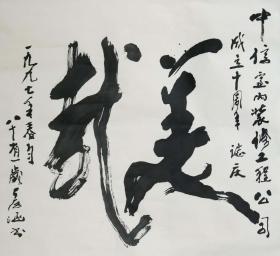 中信室内装修工程公司
成立十周年誌庆
美哉
一九九七年春月
八十有一岁彦涵书